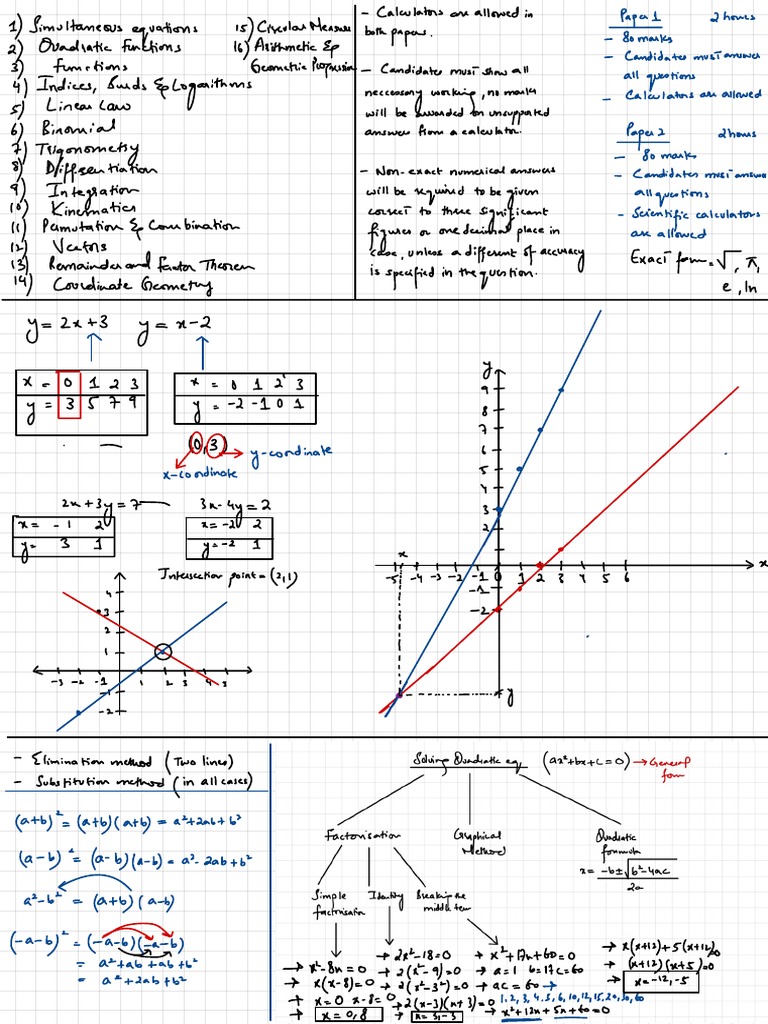 1) Simultaneous equations
2) Quadratic functions
3) Functions
4) Indices, Surds & Logarithms
5) Linear Law
6) Binomial
7) Trigonometry
8) Differentiation
9) Integration
10) Kinematics
11) Permutation & Combination
12) Vectors
13) Remainder and Factor Theorem
14) Coordinate Geometry
15) Circular Measure
16) Arithmetic &
Geometric Progression
- Calculators are allowed in
both papers.
- Candidates must show all
neccessary working, no marks
will be awarded on unsupported
answers from a calculator.
- Non-exact numerical answers
will be required to be given
correct to three significant
figures or one decimal place in
case, unless a different of accuracy
is specified in the question.
Paper 1 2 hours
- 80 marks
- Candidates must answer
all questions
- Calculators are allowed
Paper 2 2 hours
- 80 marks
- Candidates must answer
all questions
- Scientific calculators
are allowed
Exact form = √, π,
e, ln
y = 2x+3 y = x-2
x = 0 1 2 3
y = 3 5 7 9
x = 0 1 2 3
y = -2 -1 0 1
(0,3)
y-cordinate
x-cordinate
2x+3y=7 3x-4y=2
x = -1 2
y = 3 1
x = -2 2
y = -2 1
Intersection point = (2,1)
4
3
2
1
-3 -2 -1 1 2 3 4 5
-1
-2
y
9
8
7
6
5
4
3
2
x
-5 -4 -3 -2 -1 0 1 2 3 4 5 6 x
-1
-2
y
- Elimination method (Two lines)
- Substitution method (in all cases)
(a+b)² = (a+b)(a+b) = a²+2ab+b²
(a-b)² = (a-b)(a-b) = a²-2ab+b²
a²-b² = (a+b)(a-b)
(-a-b)² = (-a-b)(-a-b)
= a²+ab+ab+b²
= a²+2ab+b²
Solving Quadratic eq (ax²+bx+c=0) → General
form
Factorisation
Graphical
Method
Quadratic
formula
x = -b±√b²-4ac
2a
Simple
factorisation
Identity
Breaking the
middle term
→ x²-8x=0
→ x(x-8)=0
→ x=0 x-8=0
→ x=0,8
→ 2x²-18=0
→ 2(x²-9)=0
→ 2(x²-3²)=0
→ 2(x-3)(x+3)=0
→ x=3,-3
→ x²+17x+60=0
→ a=1 b=17 c=60
→ ac=60 →
1, 2, 3, 4, 5, 6, 10, 12, 15, 20, 30, 60
→ x²+12x+5x+60=0
→ x(x+12)+5(x+12)=0
→ (x+12)(x+5)=0
→ x=-12,-5